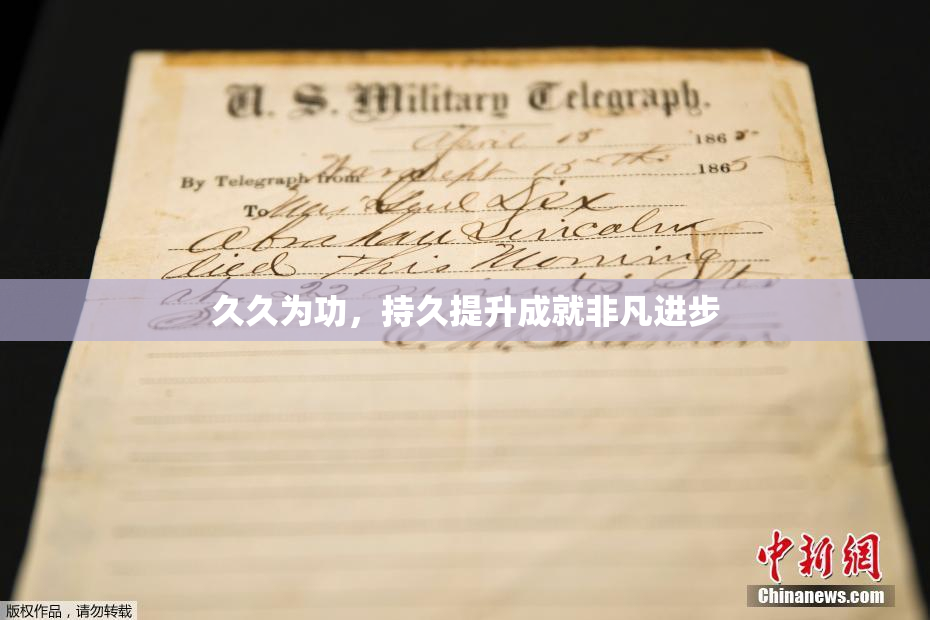 U. S. Military Telegraph.
April 15 1865
By Telegraph from War Dept 15th 1865
To Maj Genl Dix
Abraham Lincoln
died This Morning
at 22 minutes after
久久为功，持久提升成就非凡进步
E. M. Stanton
中新网
Chinanews.com
版权作品，请勿转载